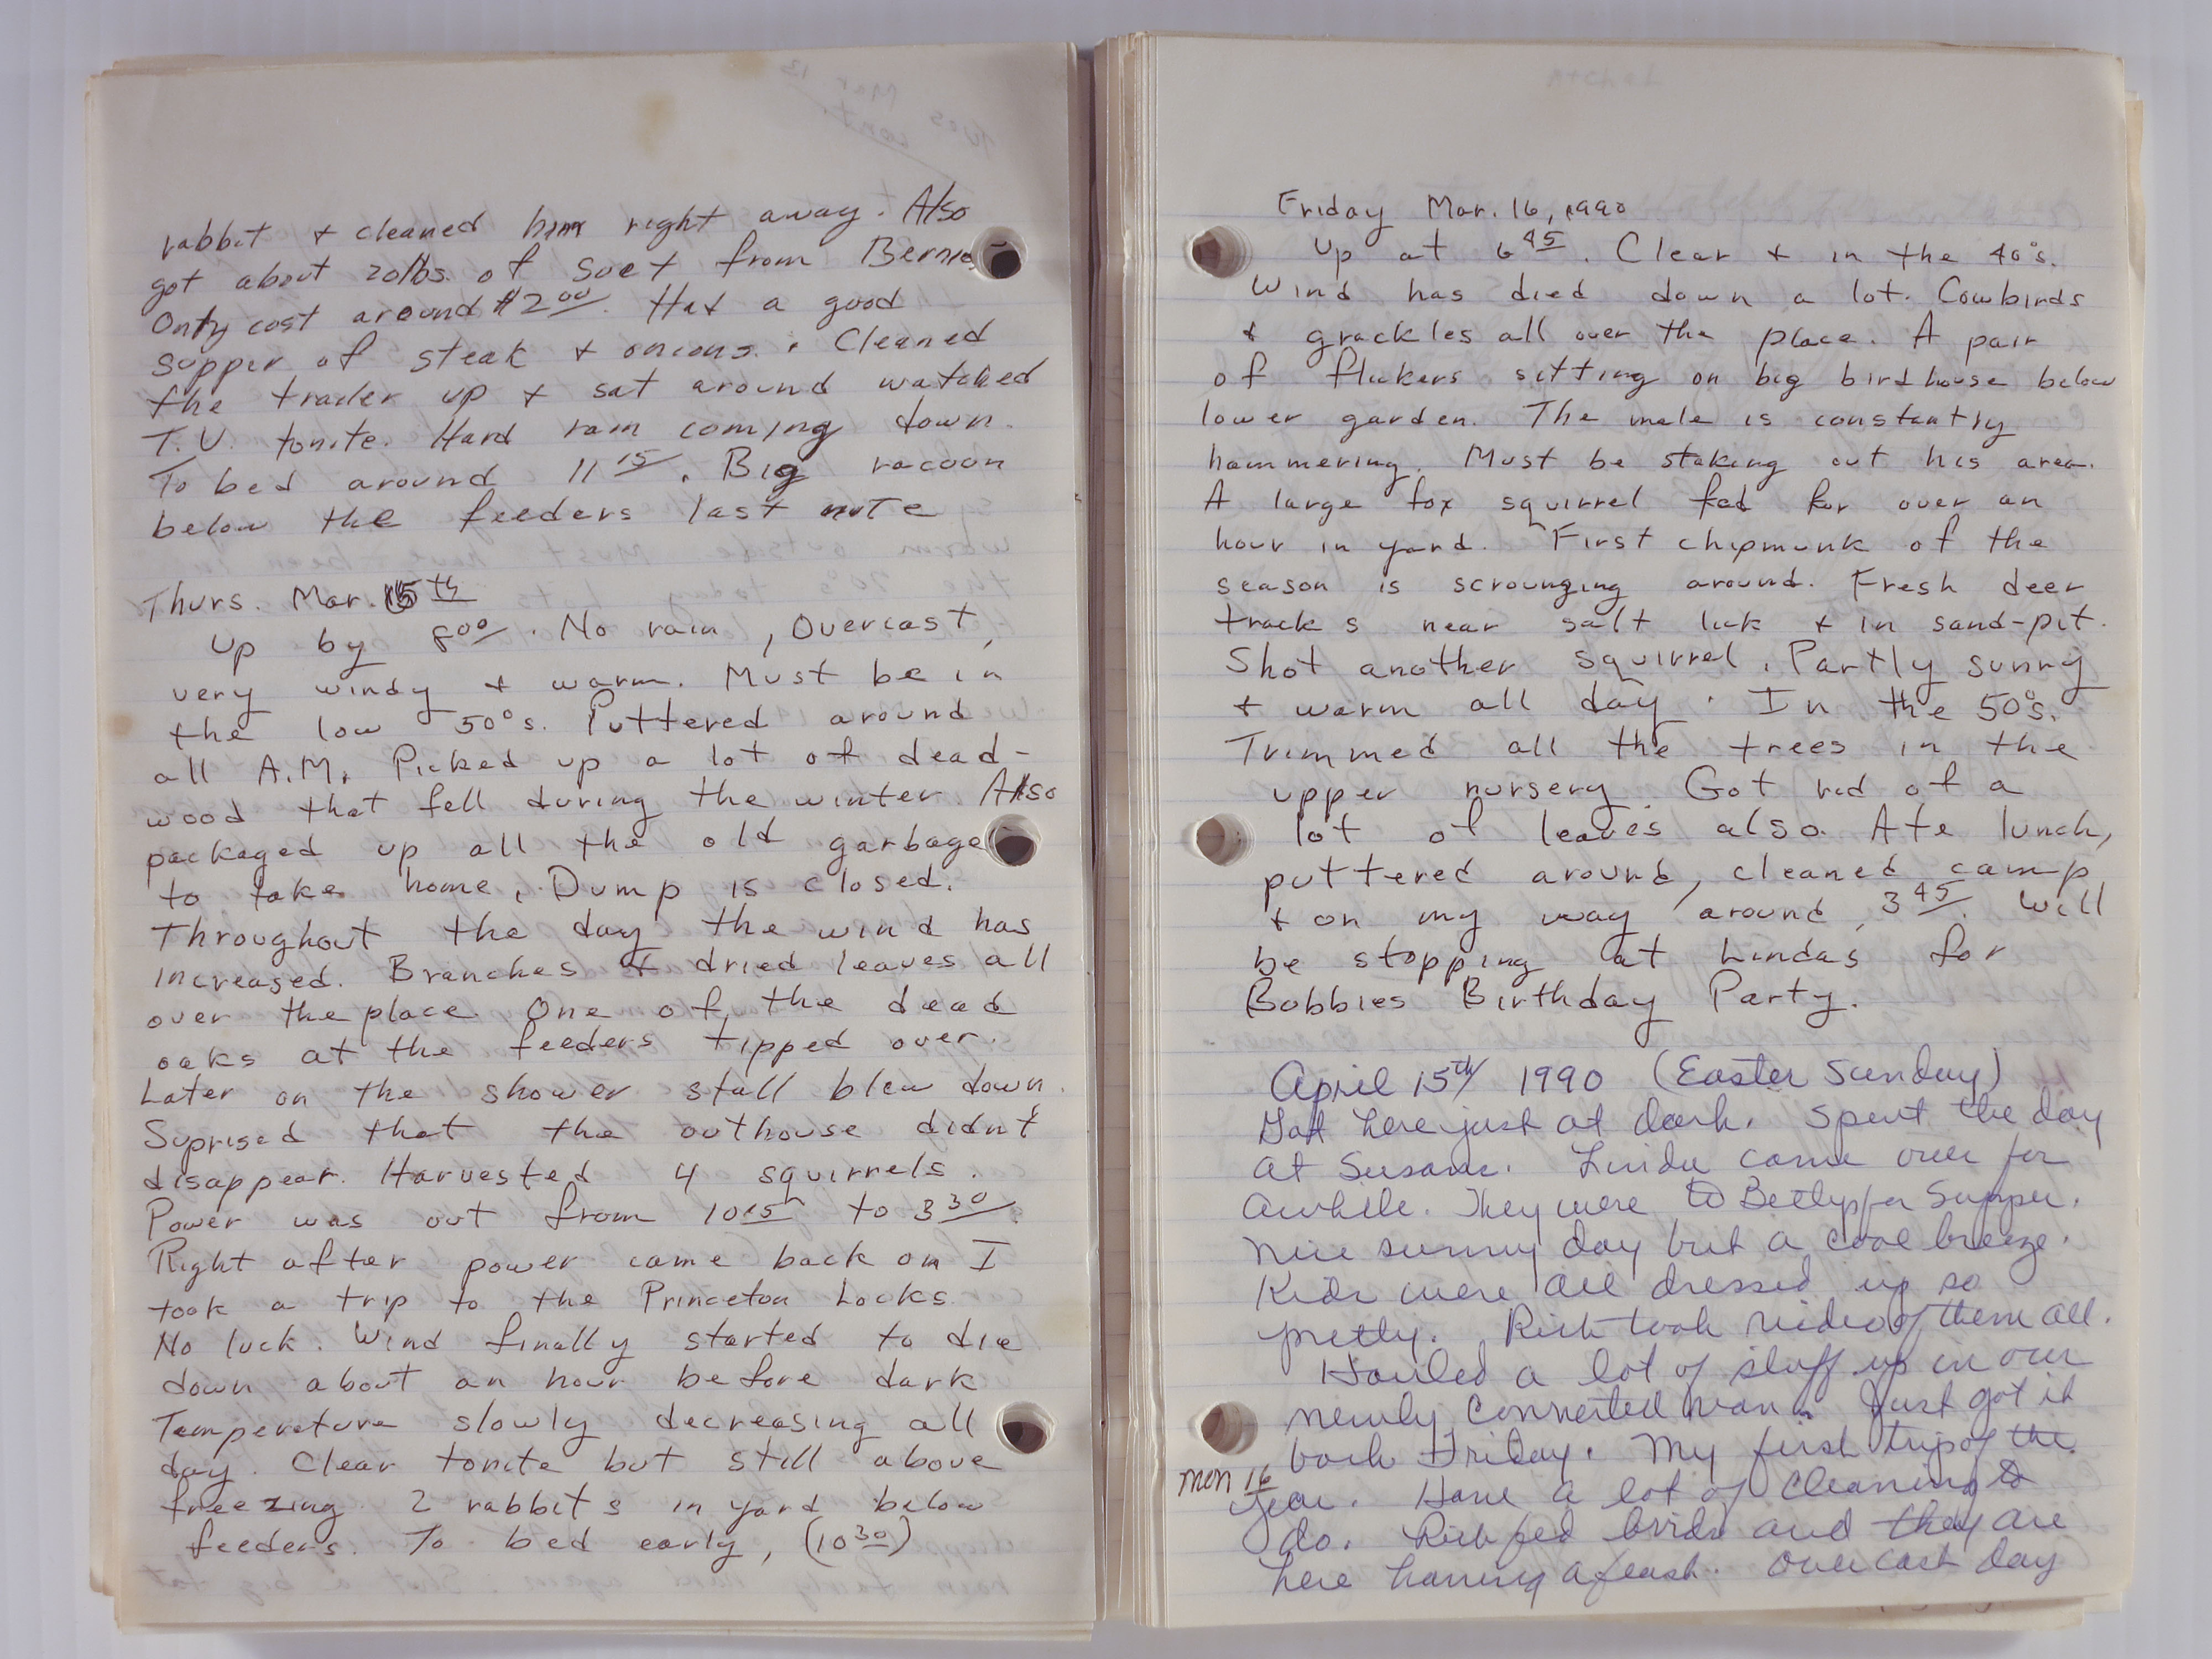 rabbit + cleaned him right away. Also
got about 20lbs. of suet from Bernie
Only cost around $2 00. Had a good
supper of steak + onions. Cleaned
the trailer up + sat around watched
T.V. tonite. Hard rain coming down.
To bed around 11 15. Big racoon
below the feeders last nite
Thurs. Mar. 15th
Up by 8 00. No rain, Overcast,
very windy + warm. Must be in
the low 50°s. Puttered around
all A.M. Picked up a lot of dead-
wood that fell during the winter Also
packaged up all the old garbage
to take home. Dump is closed.
Throughout the day the wind has
increased. Branches + dried leaves all
over the place One of the dead
oaks at the feeders tipped over.
Later on the shower stall blew down.
Suprised that the outhouse didnt
disappear. Harvested 4 squirrels.
Power was out from 10 15 to 3 30.
Right after power came back on I
took a trip to the Princeton Locks
No luck. Wind finally started to die
down about an hour before dark
Temperature slowly decreasing all
day. Clear tonite but still above
freezing 2 rabbits in yard below
feeders. To bed early, (10 30)
Friday Mar. 16, 1990
Up at 6 45. Clear + in the 40°s.
Wind has died down a lot. Cowbirds
+ grackles all over the place. A pair
of flickers sitting on big birdhouse below
lower garden. The male is constantly
hammering. Must be staking out his area.
A large fox squirrel fed for over an
hour in yard. First chipmunk of the
season is scrounging around. Fresh deer
tracks near salt lick + in sand-pit.
Shot another squirrel. Partly sunny
+ warm all day. In the 50°s.
Trimmed all the trees in the
upper nursery. Got rid of a
lot of leaves also. Ate lunch,
puttered around, cleaned camp
+ on my way around 3 45. Will
be stopping at Lindas for
Bobbies Birthday Party.
April 15th 1990 (Easter Sunday)
Got here just at dark. Spent the day
at Susans. Linda came over for
awhile. They were to Bettys for Supper.
Nice sunny day but a cool breeze.
Kids were all dressed up so
pretty. Rick took video of them all.
Hauled a lot of stuff up in our
newly converted van. Just got it
back Friday. My first trip of the
year. Have a lot of cleaning to
Mon 16
do. Rich fed birds and they are
here having a feast. Overcast day